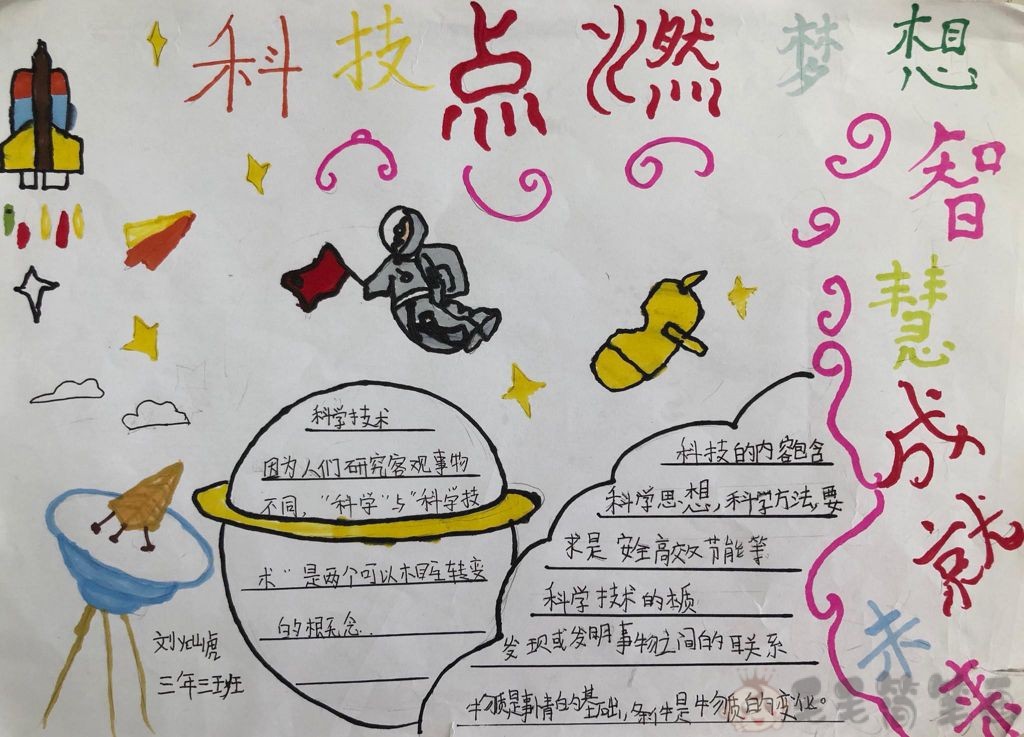 科技点燃梦想
智慧成就未来
科学技术
因为人们研究客观事物
不同，“科学”与“科学技
术”是两个可以相互转变
的概念.
科技的内容包含
科学思想，科学方法，要
求是安全高效又节能等
科学技术的本质
发现或发明事物之间的联系
物质是事情的基础，条件是物质的变化。
刘灿虎
三年三班
简笔画